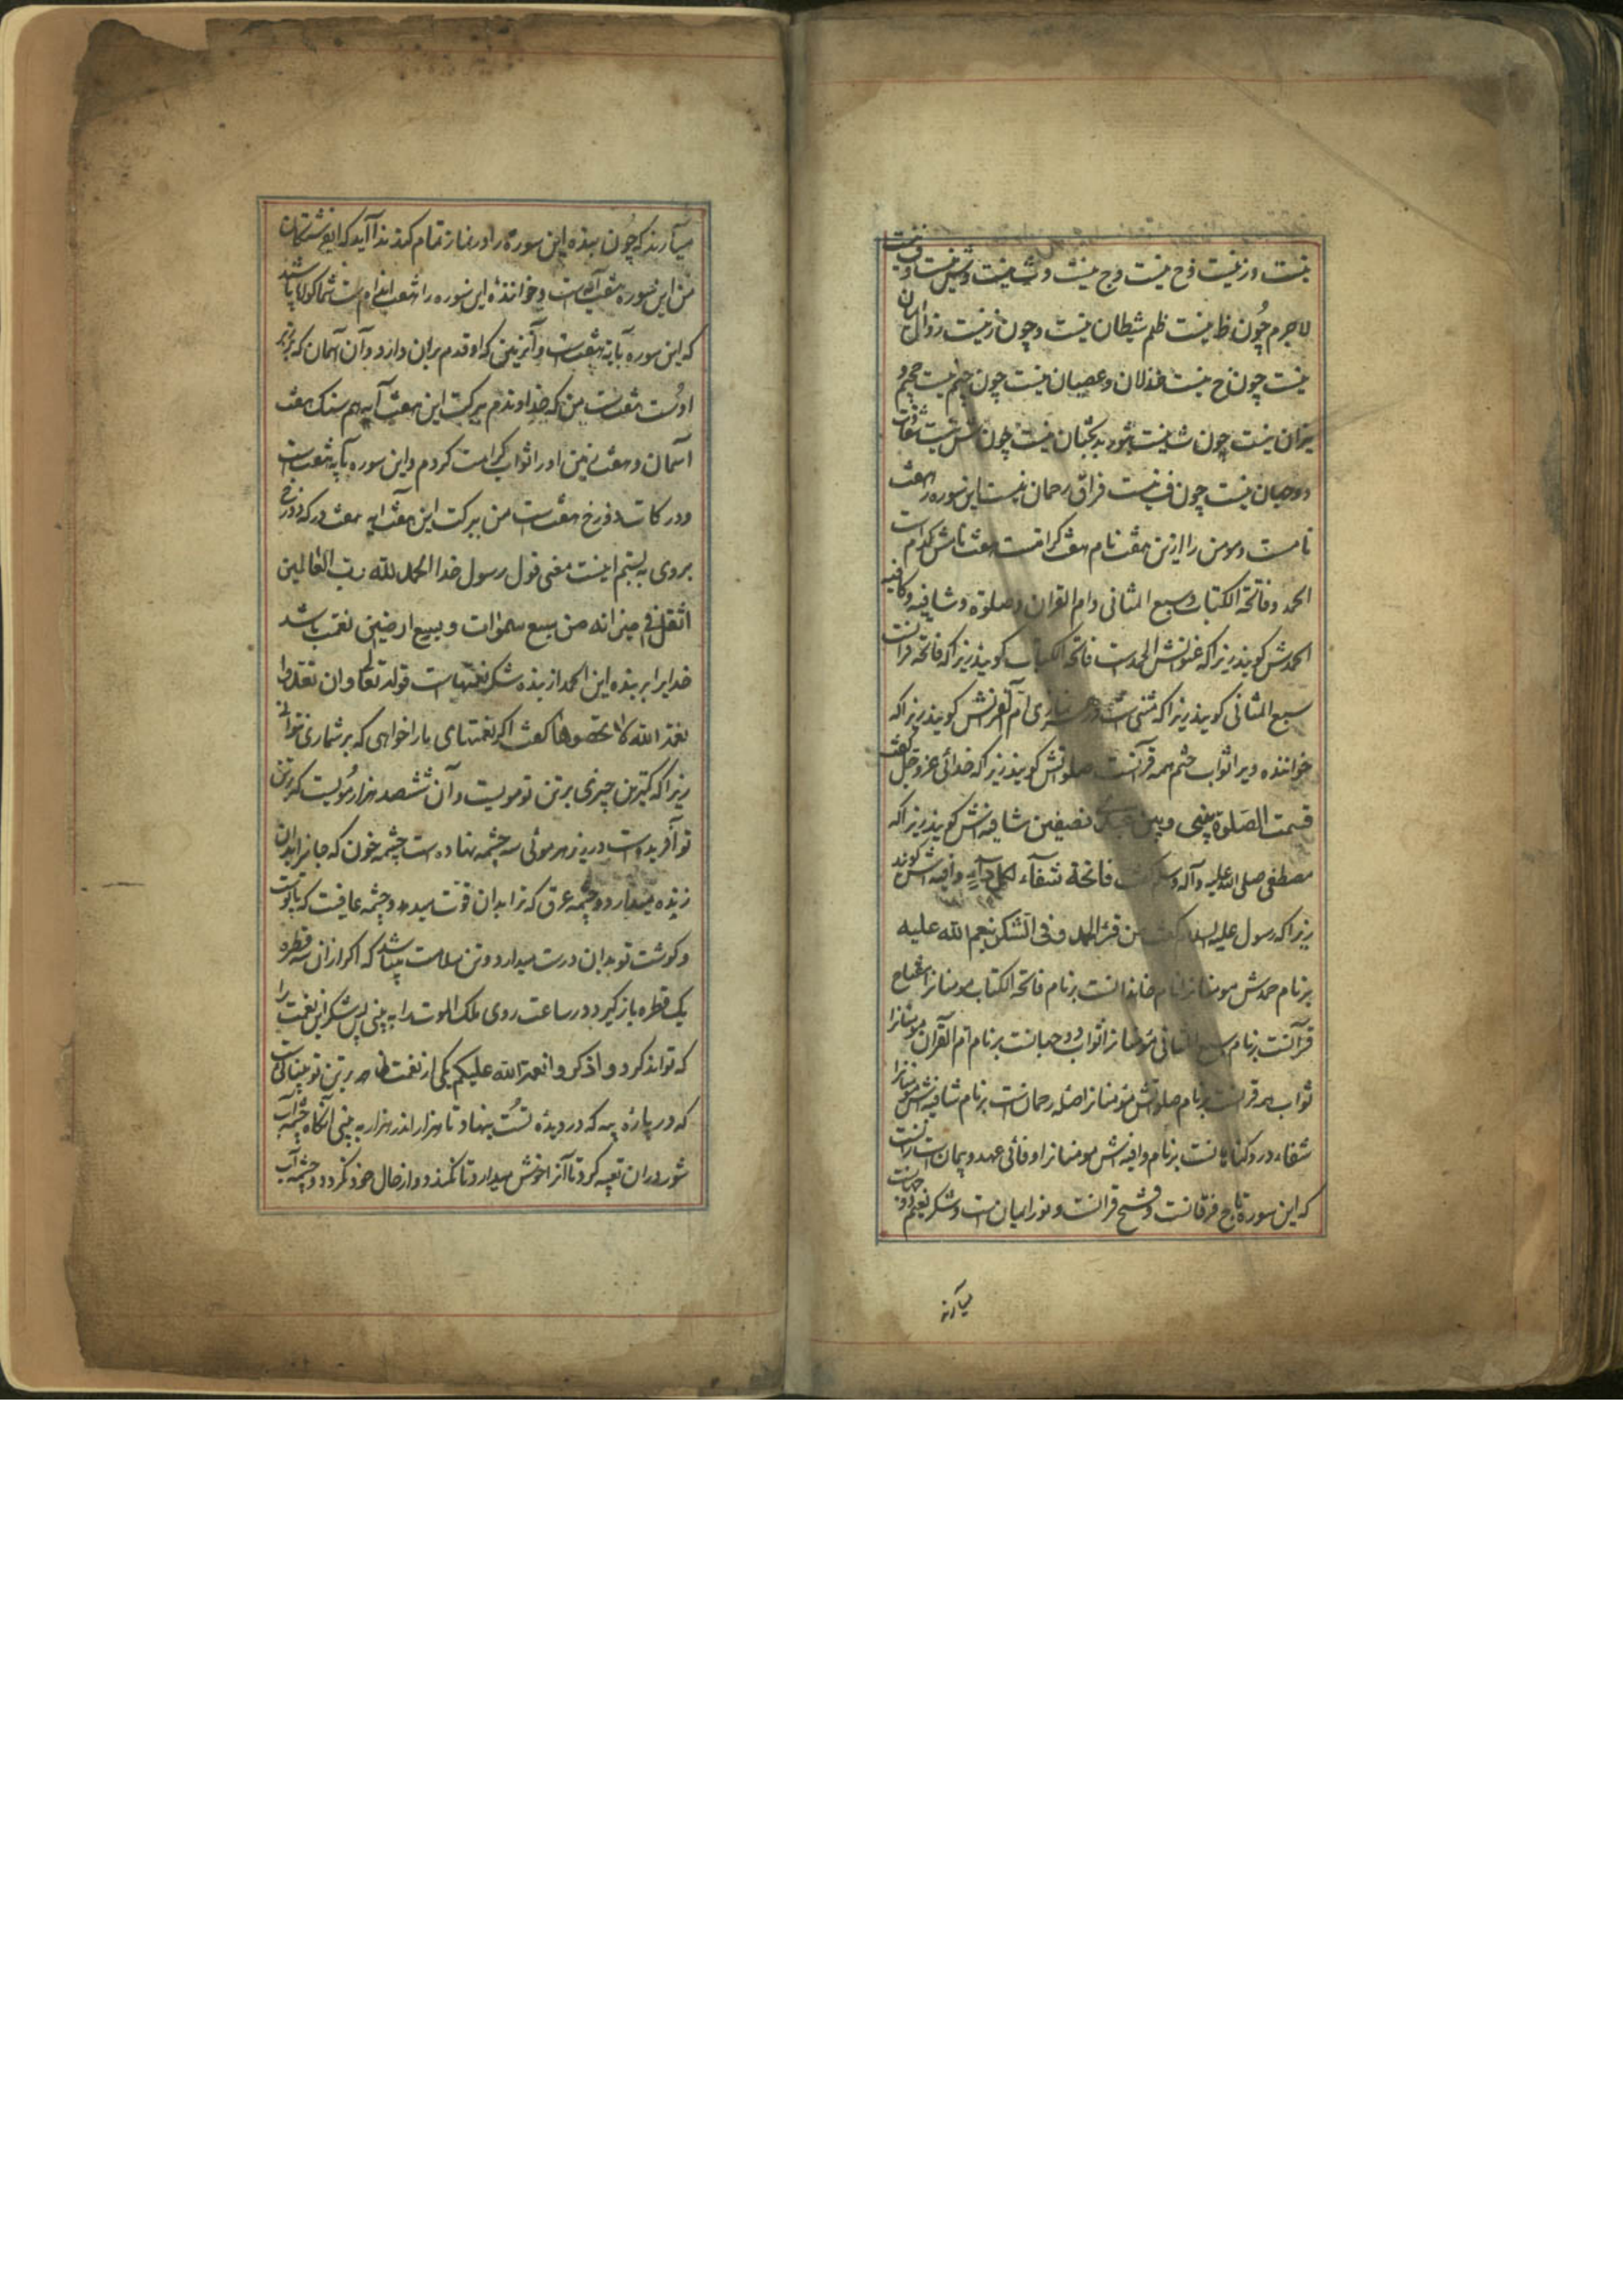 نیست و ز نیست و خ نیست و ج نیست و ش نیست و ث نیست و ف نیست
لاجرم چون ظ نیست ظلم شیطان نیست و چون ز نیست زوال ایمان
نیست چون خ نیست خذلان و عصیان نیست چون ج نیست جحیم و
نیران نیست چون ش نیست شور بدبختان نیست چون ث نیست
دوجهان نیست چون ف نیست فراق رحمان نیست این سوره را هفت
نامست و مومن را ازین هفت نام هفت کرامتست هفت نامش کدام است
الحمد و فاتحة الکتاب و سبع المثانی و ام القران و صلوة و شافیه و کافیه
الحمدش کویند زیراکه عنوانش الحمدست فاتحة الکتاب کویند زیراکه فاتحه قرانست
سبع المثانی کویند زیراکه مثنی است در هر نمازی ام القرانش کویند زیراکه
خواننده ویرا ثواب ختم همه قرآنست صلوتش کویند زیراکه خدائی عز وجل کفت
قسمت الصلوة بینی وبین عبدی نصیفین شافیه اش کویند زیراکه
مصطفی صلی الله علیه وآله وسلم کفت فاتحة شفآء لکل دآء وافیه اش کویند
زیراکه رسول علیه السلام کفت من قرء الحمد وفی الشکر نعم الله علیه
بر نام حمدش مومنانرا نام حامدانست بر نام فاتحة الکتاب مومنانرا افتتاح
قرآنست بر نام سبع المثانی مؤمنانرا ثواب دوجهانست بر نام ام القرآن مومنانرا
ثواب همه قرانست بر نام صلوتش مؤمنانرا صله رحمان است بر نام شافیه اش مومنانرا
شفاء درد کناهانست بر نام وافیه اش مومنانرا وفائی عهد و پیمان است
که این سوره تاج فرقانست و فتح قرانست و نور ایمان است و شکر نعیم دوجهانست
میآرند
میآرند که چون بنده این سوره را در نماز تمام کند ندا آید که ای فرشتکان
من این سوره هفت آیه است و خوانندهٔ این سوره را هفت اندام است شما کواه باشید
که این سوره بآیه هفت است و آن زمین که او قدم بران دارد و آن آسمان که بر زبر
اوست هفت است من که خداوندم ببرکت این هفت آیه هم سنک هفت
آسمان و هفت زمین اورا ثواب کرامت کردم و این سوره بآیه هفت است
و درکات دوزخ هفت است من ببرکت این هفت آیه هفت درکه دوزخ
بروی به بستم اینست معنی قول رسول خدا الحمد لله رب العالمین
اثقل فی میزانه من سبع سموات و سبع ارضین نعمت باشد
خدایرا بر بنده این الحمد از بنده شکر نعمتهاست قوله تعالی وان تعدوا
نعمة الله لا تحصوها کفت اکر نعمتهای مارا خواهی که برشماری نتوانی
زیراکه کمترین چیزی بر تن تو مویست و آن ششصد هزار مویست که بر تن
تو آفریده است در زیر هر موئی سه چشمه نهاده است چشمه خون که جانرا بدان
زنده میدارد و چشمه عرق که ترا بدان قوت میدهد و چشمه عافیت که پوست
و کوشت تو بدان درست میدارد و تن سلامت میباشد که اکر ازان سه قطره
یک قطره باز کیرد در ساعت روی ملک الموت را به بینی پس شکر این نعمت را
که تواند کرد و اذکروا نعمة الله علیکم یکی از نعمت ظاهر بر تن تو بینائی است
که در پارهٔ پیه که در دیدهٔ تست بنهاد تا هزار اندر هزار به بینی آنکاه چشمه آب
شور دران تعبیه کرد تا آنرا خوش میدارد تا نکندد و از حال خود نکردد و چشمه آب